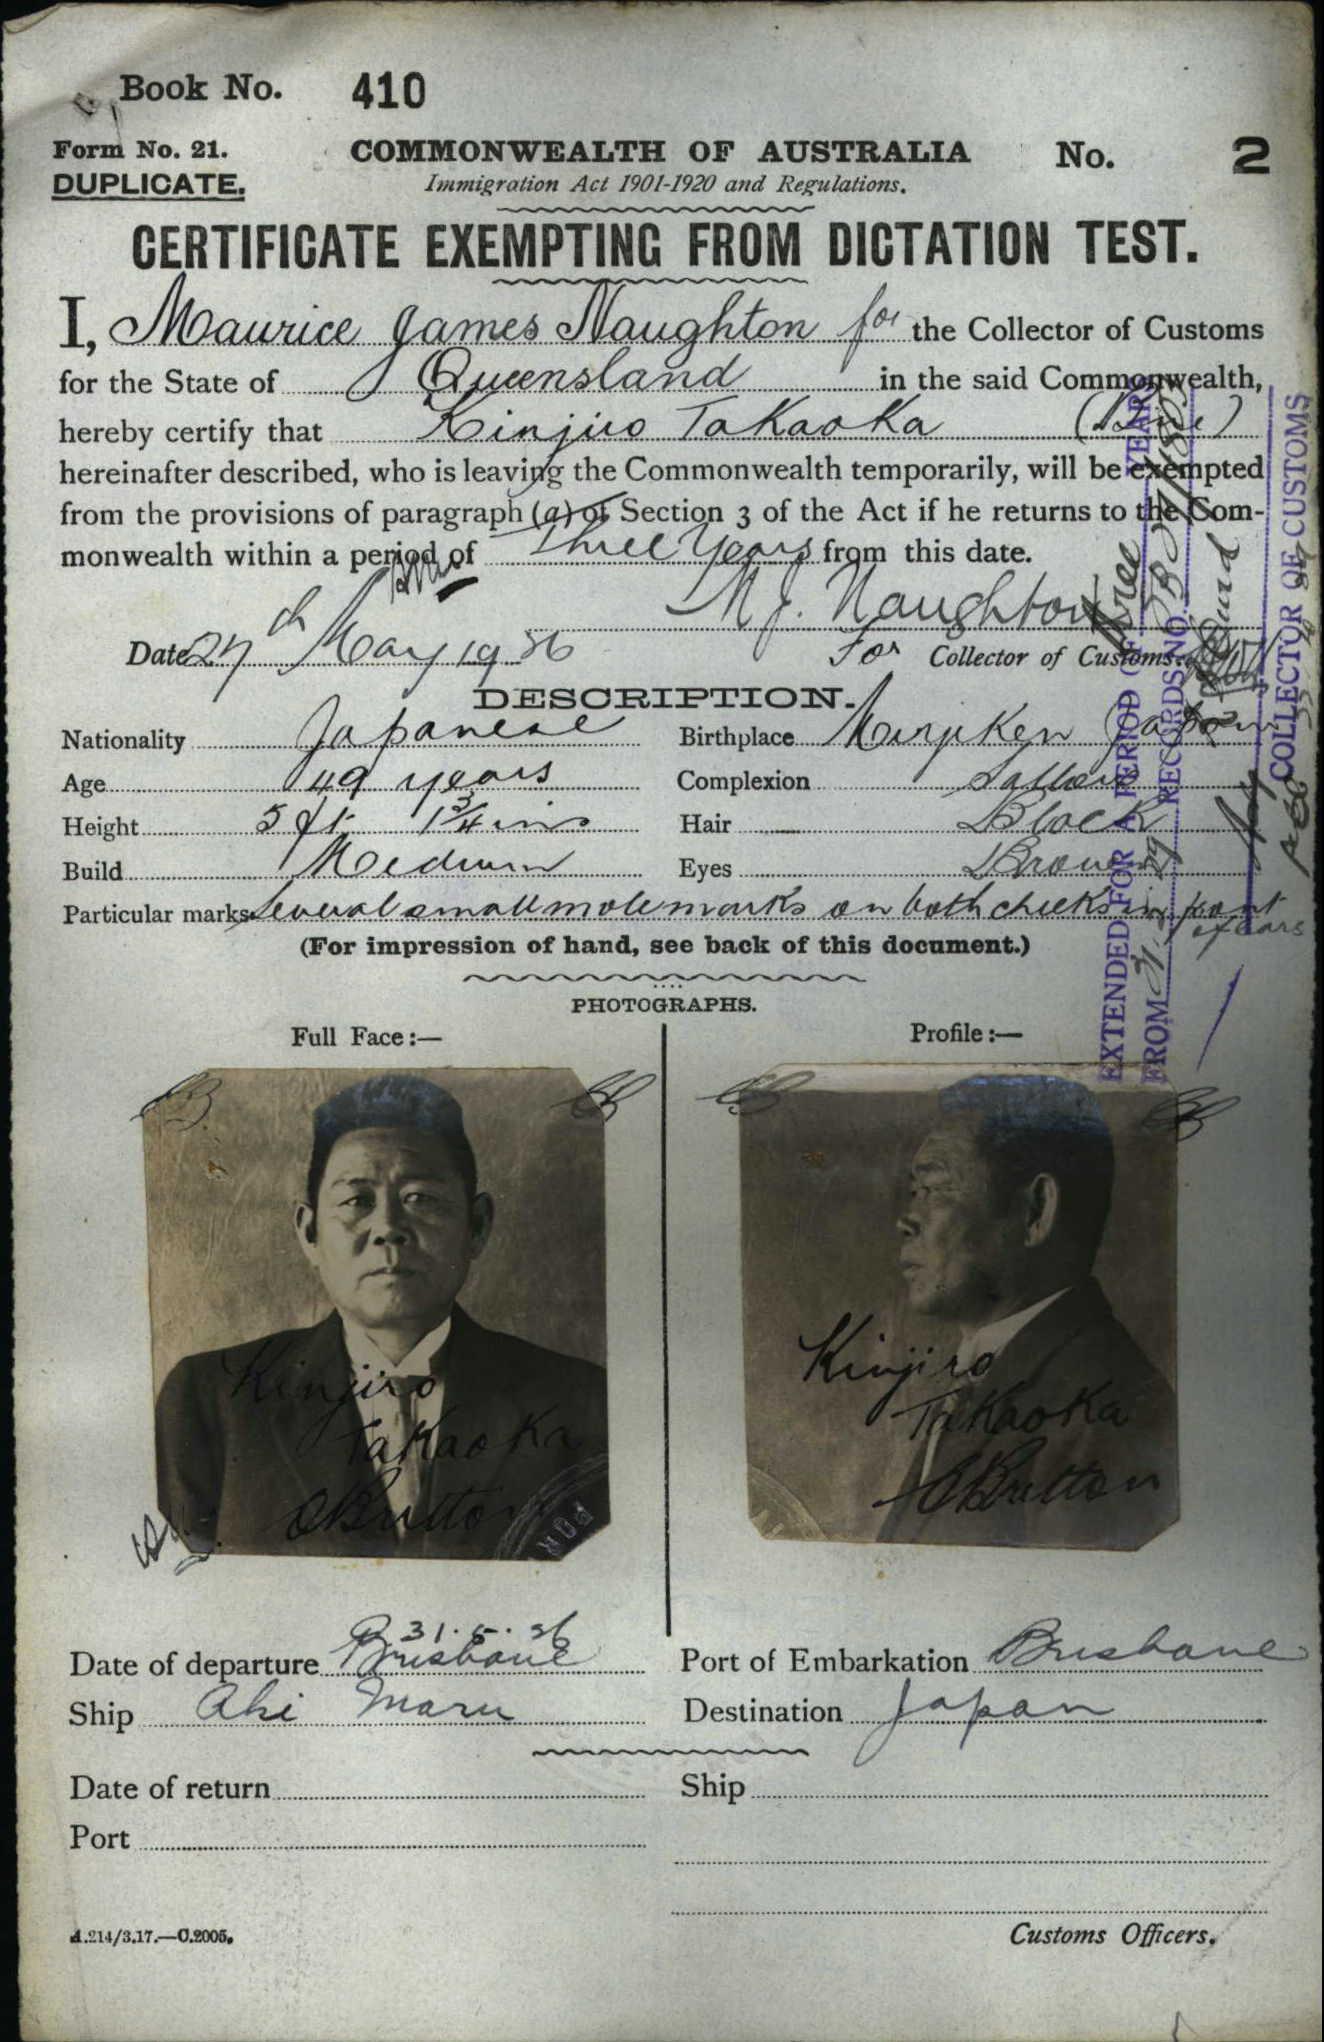 Book No. 410
Form No. 21. COMMONWEALTH OF AUSTRALIA No. 2
DUPLICATE. Immigration Act 1901-1920 and Regulations.
CERTIFICATE EXEMPTING FROM DICTATION TEST.
I, Maurice James Naughton for the Collector of Customs
for the State of Queensland in the said Commonwealth,
hereby certify that Kinjiro Takaoka
hereinafter described, who is leaving the Commonwealth temporarily, will be exempted
from the provisions of paragraph (a) of Section 3 of the Act if he returns to the Com-
monwealth within a period of Three Years from this date.
M J. Naughton
Date 27th May 1926 For Collector of Customs.
DESCRIPTION.
Nationality Japanese Birthplace Japan
Age 49 years Complexion Sallow
Height 5 ft 1 3/4 ins Hair Black
Build Medium Eyes Brown
Particular marks Several small mole marks on both cheeks in front
of ears
(For impression of hand, see back of this document.)
PHOTOGRAPHS.
Full Face:— Profile:—
Kinjiro
Takaoka
Kinjiro
Takaoka
EXTENDED FOR A PERIOD OF three YEARS
FROM RECORDS NO.
COLLECTOR OF CUSTOMS
31.5.26
Date of departure Brisbane Port of Embarkation Brisbane
Ship Aki Maru Destination Japan
Date of return Ship
Port
A.214/3.17.—C.2005. Customs Officers.